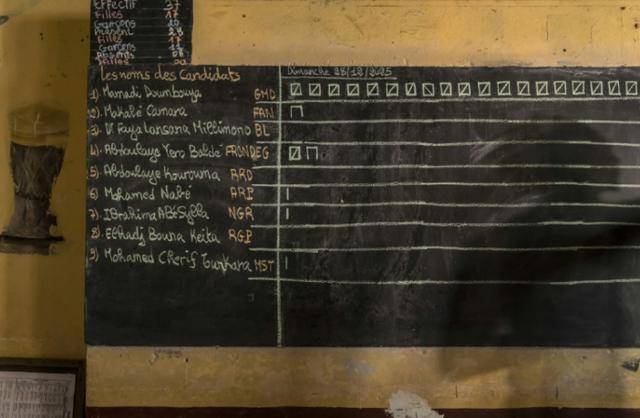 Effectif 37
Filles 17
Garçons 20
Présent 28
Filles 17
Garçons 11
Absents 08
Filles
les noms des Candidats
Dimanche 28/12/2025
1). Mamadi Doumbouya GMD
2). Makalé Camara FAN
3). Dr Faya Lansana Millimono BL
4). Abdoulaye Yero Baldé FRONDEG
5). Abdoulaye Kourouma RRD
6). Mohamed Nabé ARP
7). IBrahima ABé Sylla NGR
8). Elhadj Bouna Keita RGP
9). Mohamed Chérif Tounkara MST